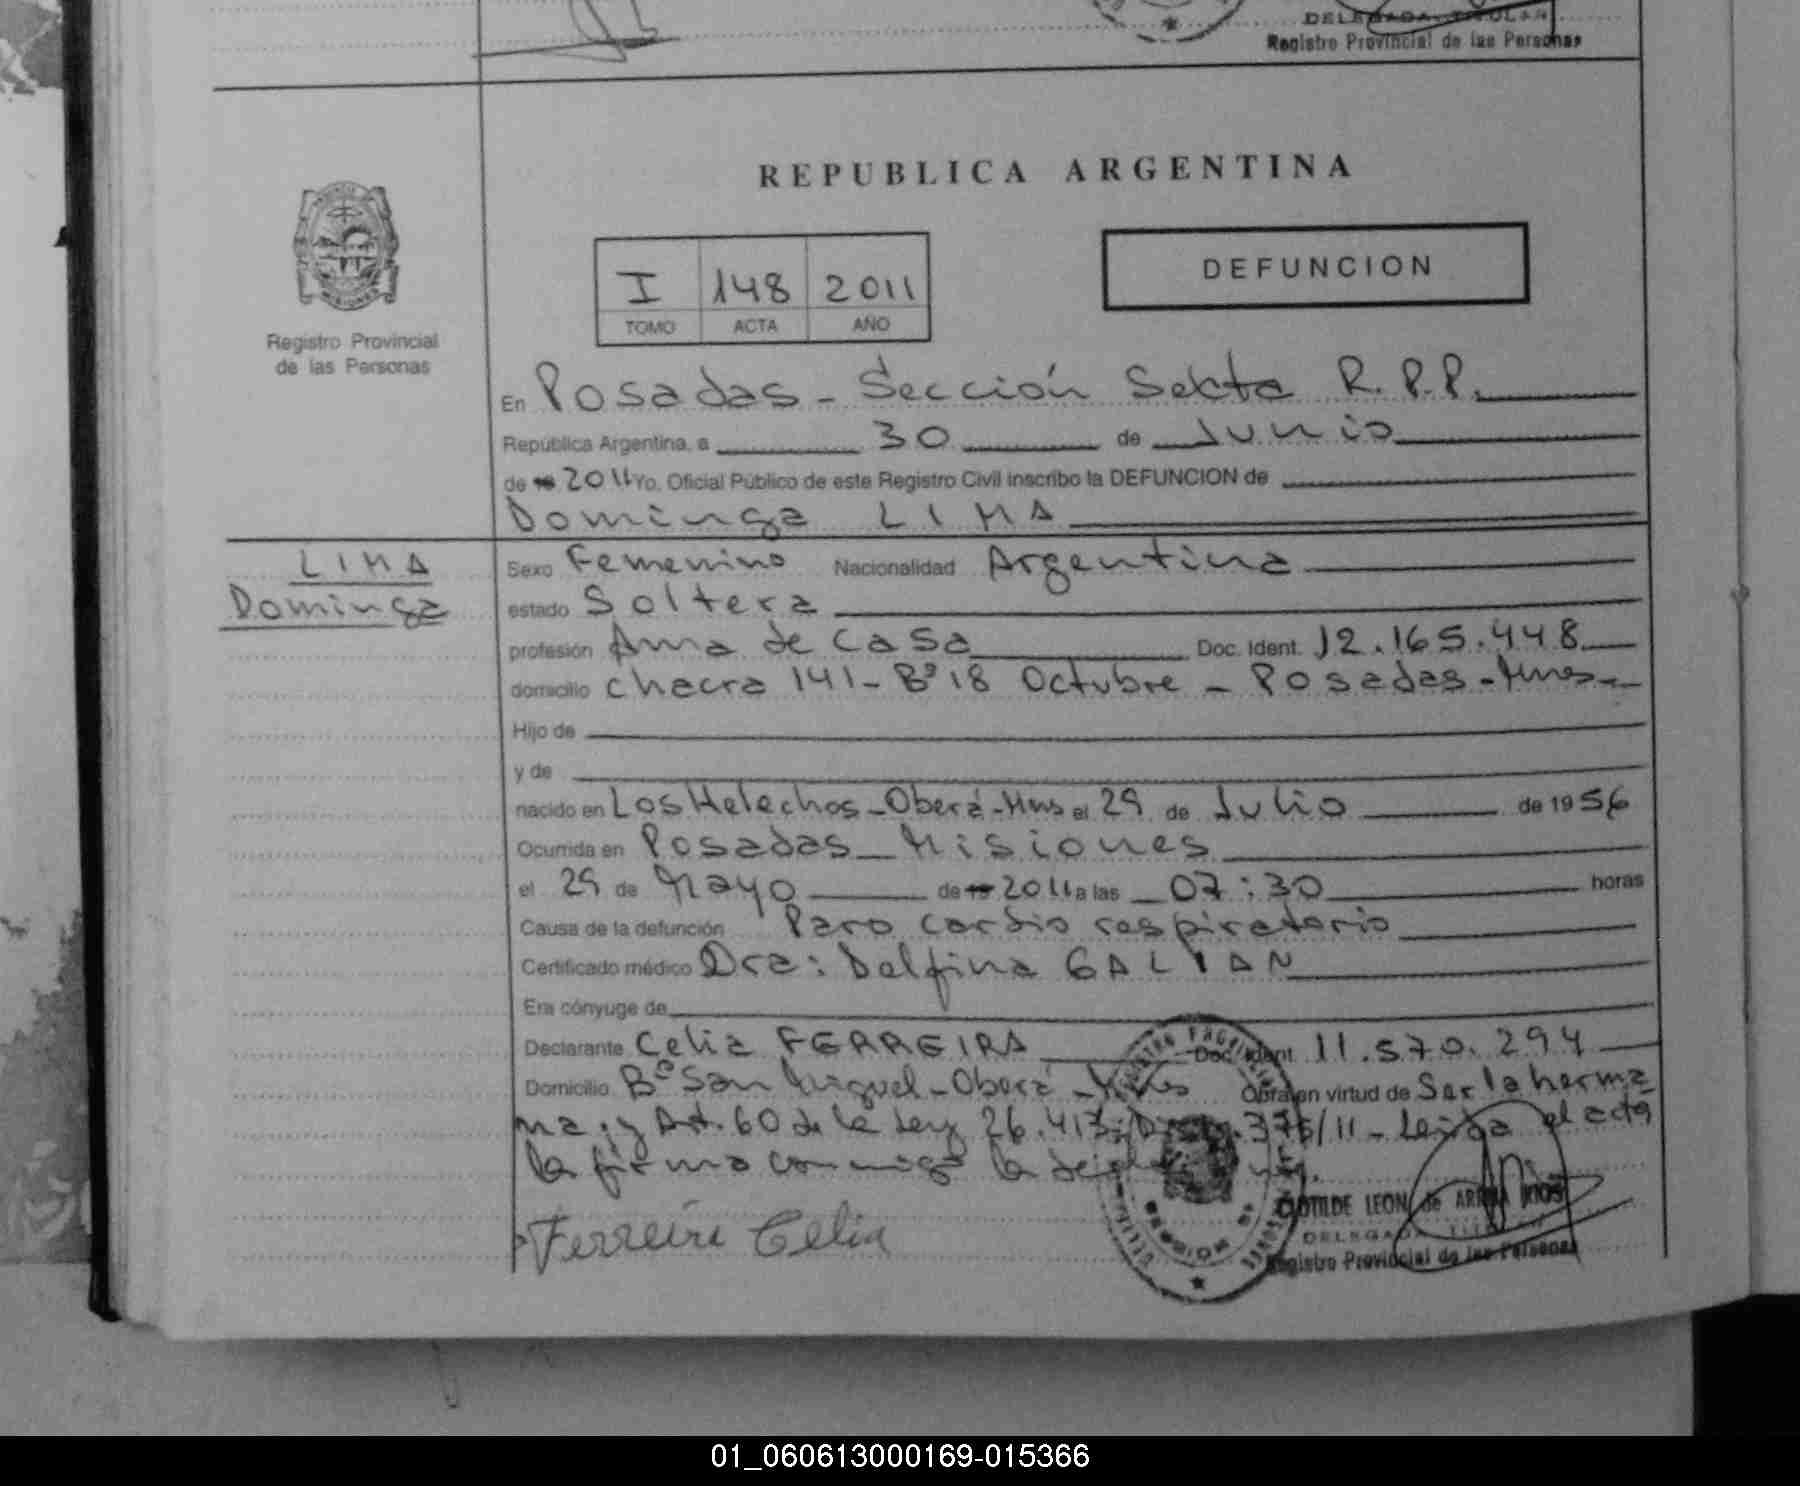 DELEGADA TITULAR
Registro Provincial de las Personas
REPUBLICA ARGENTINA
I 148 2011
TOMO ACTA AÑO
DEFUNCION
Registro Provincial
de las Personas
En Posadas - Sección Sexta R.P.P.
República Argentina, a 30 de Junio
de 19 2011 Yo, Oficial Público de este Registro Civil inscribo la DEFUNCION de
Dominga LIMA
LIMA
Dominga
Sexo Femenino Nacionalidad Argentina
estado Soltera
profesión Ama de casa Doc. Ident. 12.165.448
domicilio chacra 141 - Bº 18 Octubre - Posadas - Mnes
Hijo de
y de
nacido en Los Helechos - Oberá - Mnes el 29 de Julio de 1956
Ocurrida en Posadas - Misiones
el 29 de Mayo de 19 2011 a las 07:30 horas
Causa de la defunción Paro cardio respiratorio
Certificado médico Dra: Delfina GALIAN
Era cónyuge de
Declarante Celia FERREIRA Doc. Ident. 11.570.294
Domicilio Bº San Miguel - Oberá - Mnes Obra en virtud de Ser la herma
na; y Art. 60 de la Ley 26.413; 375/11 - Leída el acta
la firma conmigo la
Ferreira Celia
CLOTILDE LEON de ARRUA RIOS
DELEGADA TITULAR
Registro Provincial de las Personas
MISIONES
01_060613000169-015366